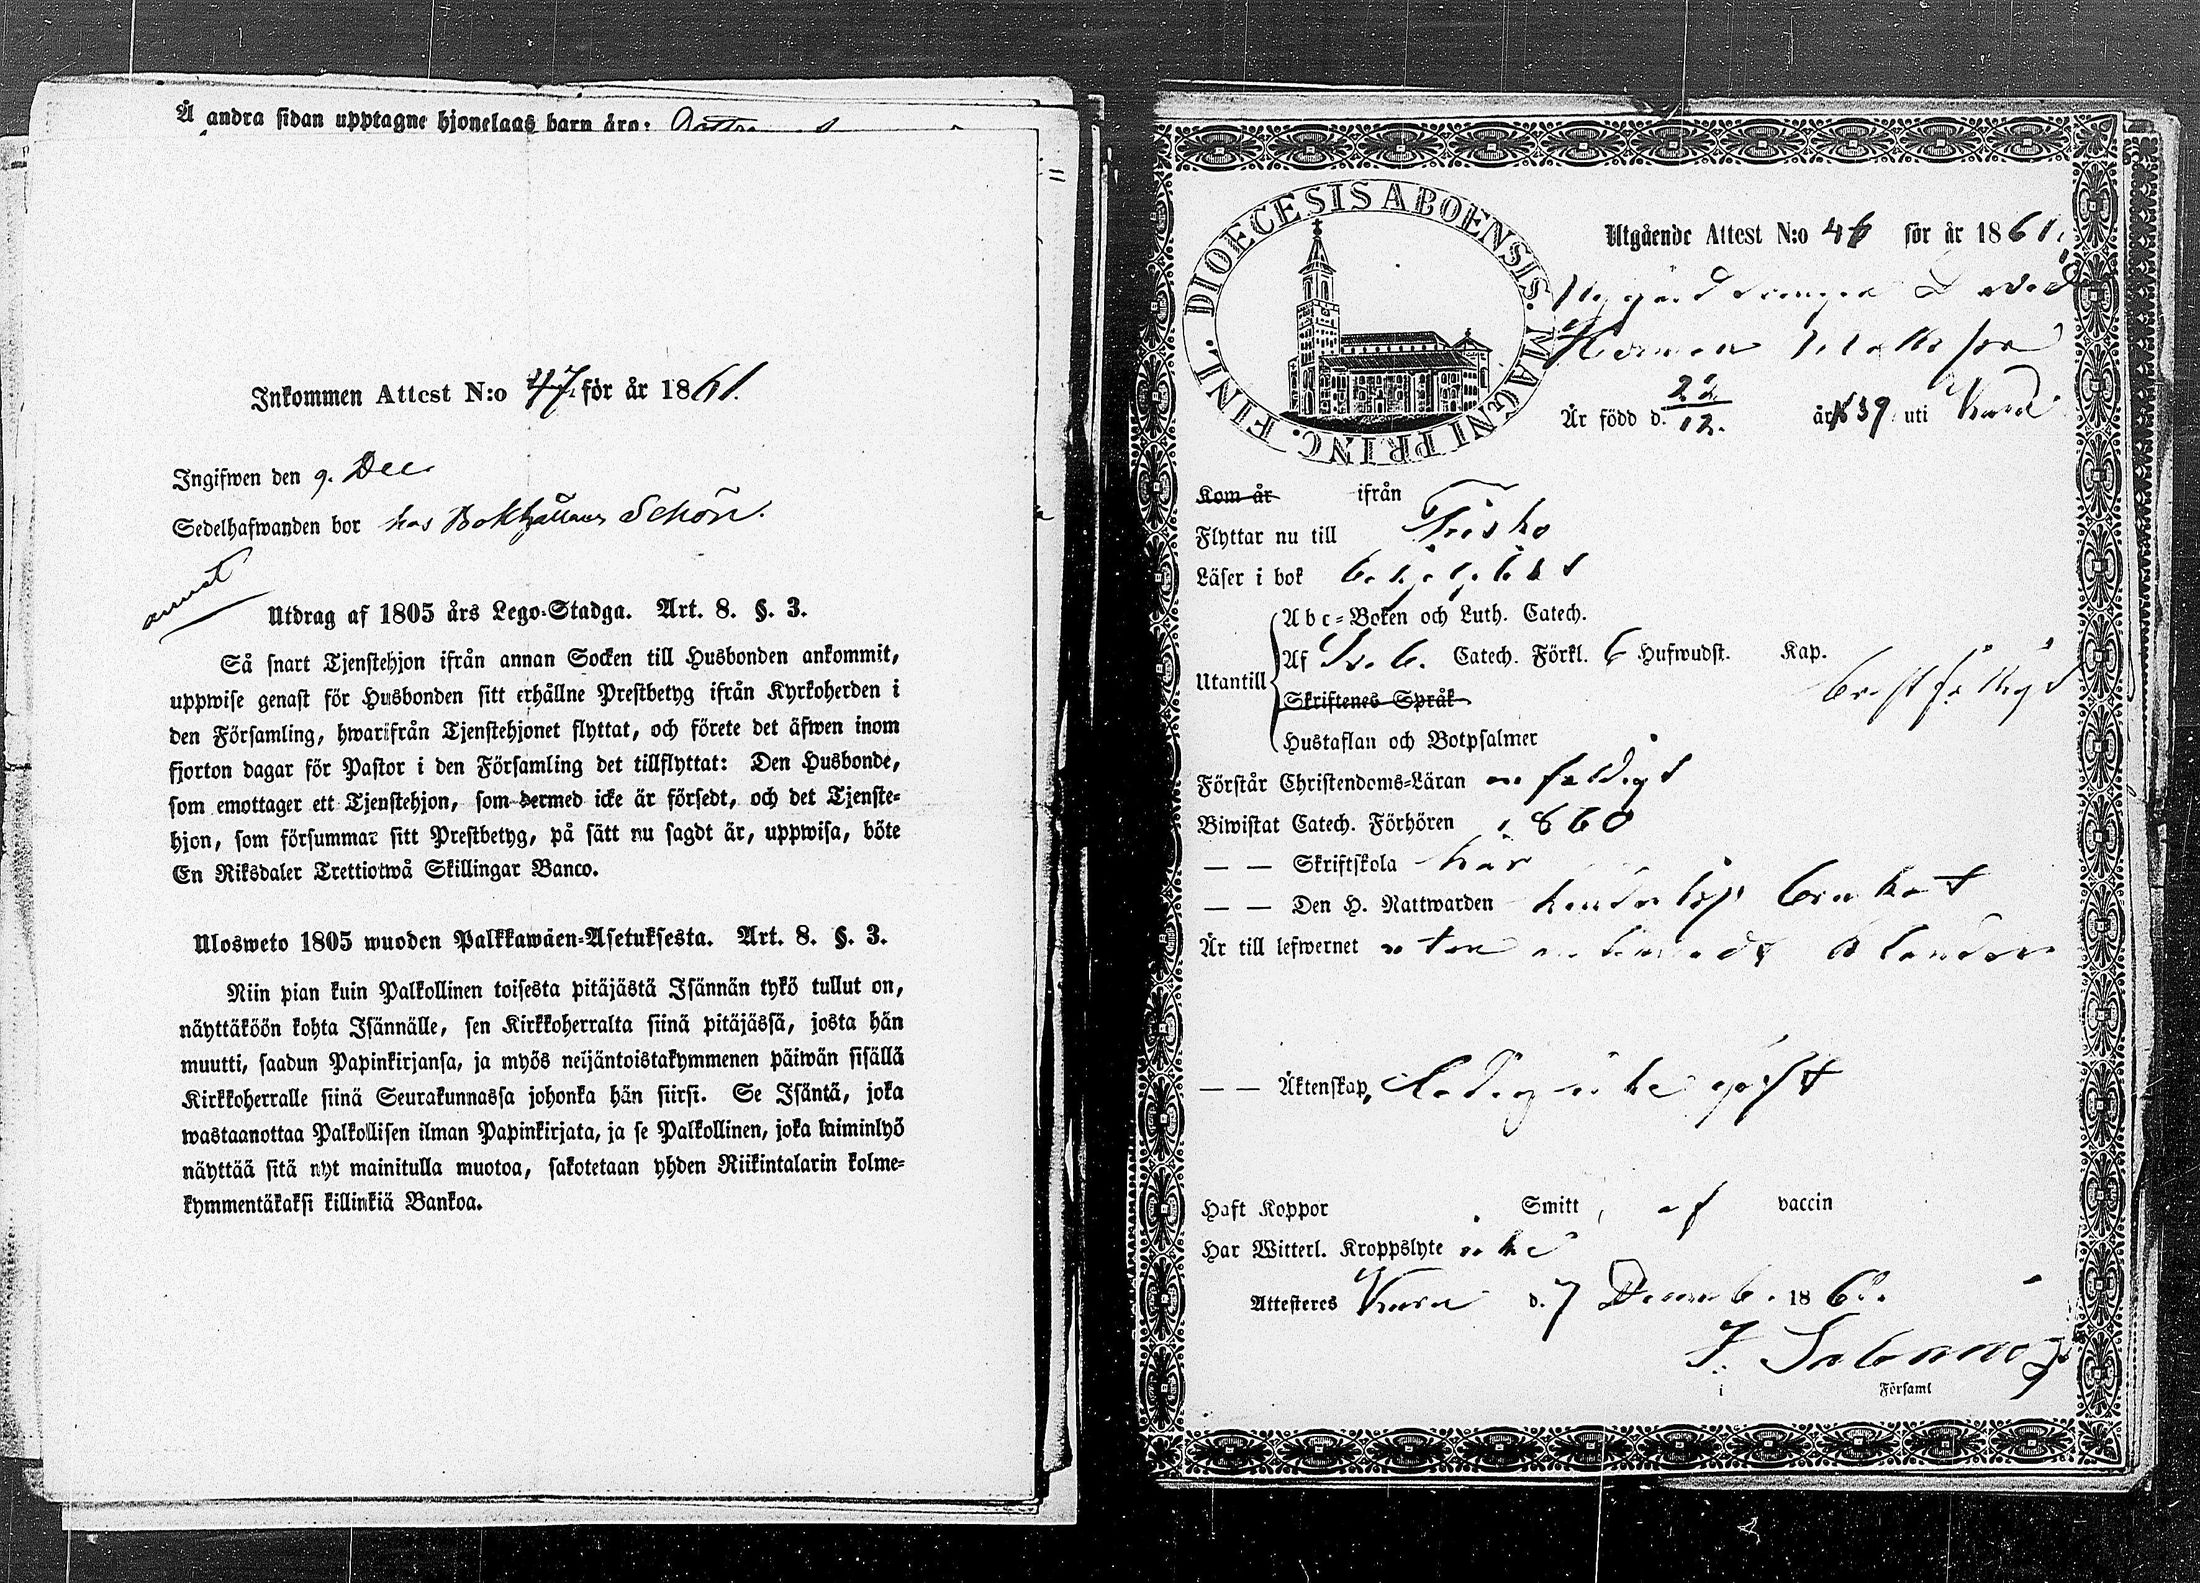 Å andra sidan upptagne hjonelags barn äro:
Inkommen Attest N:o 47 för år 1861.
Ingifwen den 9. Dec
Sedelhafwanden bor hos Bokhållaren Schön.
annot
Utdrag af 1805 års Lego-Stadga. Art. 8. §. 3.
Så snart Tjenstehjon ifrån annan Socken till Husbonden ankommit,
uppwise genast för Husbonden sitt erhållne Prestbetyg ifrån Kyrkoherden i
den Församling, hwarifrån Tjenstehjonet flyttat, och förete det äfwen inom
fjorton dagar för Pastor i den Församling det tillflyttat: Den Husbonde,
som emottager ett Tjenstehjon, som dermed icke är försedt, och det Tjenste-
hjon, som försummar sitt Prestbetyg, på sätt nu sagdt är, uppwisa, böte
En Riksdaler Trettiotwå Skillingar Banco.
Ulosweto 1805 wuoden Palkkawäen-Asetuksesta. Art. 8. §. 3.
Niin pian kuin Palkollinen toisesta pitäjästä Isännän tykö tullut on,
näyttäköön kohta Isännälle, sen Kirkkoherralta siinä pitäjässä, josta hän
muutti, saadun Papinkirjansa, ja myös neljäntoistakymmenen päiwän sisällä
Kirkkoherralle siinä Seurakunnassa johonka hän siirsi. Se Isäntä, joka
wastaanottaa Palkollisen ilman Papinkirjata, ja se Palkollinen, joka laiminlyö
näyttää sitä nyt mainitulla muotoa, sakotetaan yhden Riikintalarin kolme-
kymmentäkaksi killinkiä Bankoa.
DIOECESIS ABOENSIS. MAGNI PRINC. FINL.
Utgående Attest N:o 46 för år 1861.
David
Herman
Är född d. 22/12. år 1839 uti
Kom år ifrån
Flyttar nu till
Läser i bok
Abc-Boken och Luth. Catech.
Utantill Af Sv. b. Catech. Förkl. 6 Hufwudst. Kap.
Skriftenes Språk
Hustaflan och Botpsalmer
Förstår Christendoms-Läran enfaldigt
Biwistat Catech. Förhören 1860
— — Skriftskola här
— — Den H. Nattwarden
Är till lefwernet utan
— — Äktenskap, ledig
Haft Koppor Smitt af vaccin
Har Witterl. Kroppslyte icke
Attesteres d. 7 December 1861.
i Församl